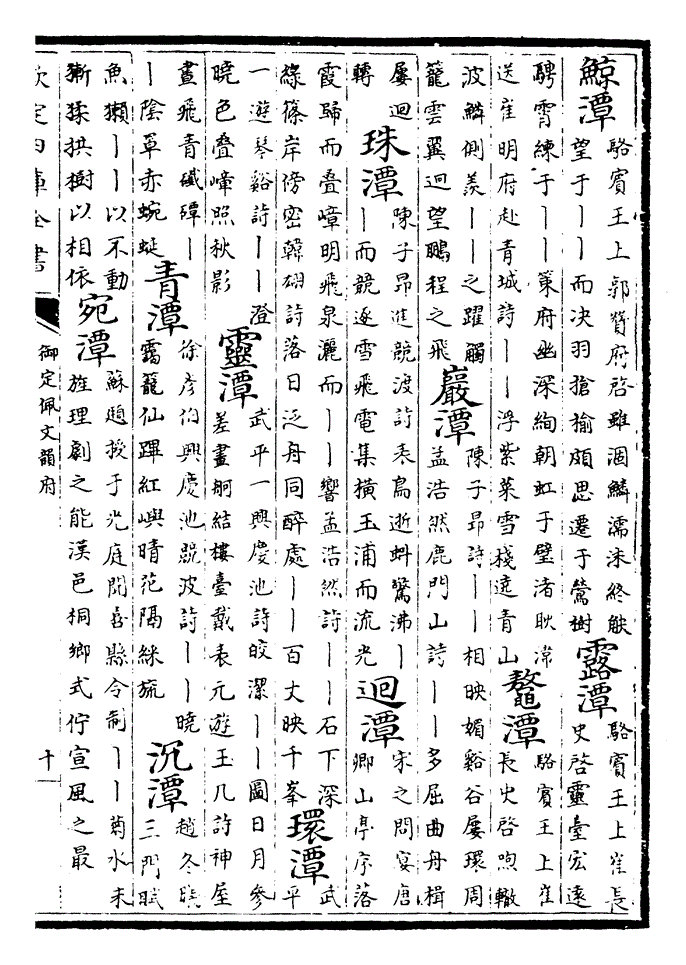 鯨潭
駱賓王上郭贊府啓雖涸鱗濡沫終觖
望于丨丨而决羽搶榆頗思遷于鶯樹
露潭
駱賓王上崔長
史啓靈臺宏遠
騁霄練于丨丨䇿府幽深絢朝虹于璧渚耿湋
送崔明府赴青城詩丨丨浮紫菜雪棧遠青山
鼇潭
駱賓王上崔
長史啓煦轍
波鱗側羨丨丨之躍觸
籠雲翼迥望鵬程之飛
巖潭
陳子昂詩丨丨相映媚谿谷屢環周
孟浩然鹿門山詩丨丨多屈曲舟楫
屢迴
轉
珠潭
陳子昂進競渡詩表鳥逝蚪驚沸丨
丨而競逐雪飛電集橫玉浦而流光
迴潭
宋之問宴唐
卿山亭序落
霞歸而叠嶂明飛泉灑而丨丨響孟浩然詩丨丨石下深
綠篠岸傍密韓翃詩落日泛舟同醉處丨丨百丈映千峯
環潭
武
平
一遊琴谿詩丨丨澄
曉色叠嶂照秋影
靈潭
武平一興慶池詩皎潔丨丨圖日月參
差畫舸結樓臺戴表元遊玉几詩神屋
晝飛青礮磹丨
丨陰草赤蜿蜒
青潭
徐彥伯興慶池競波詩丨丨曉
靄籠仙蹕紅嶼晴花隔綵旒
沉潭
趙冬曦
三門賦
魚獺丨丨以不動
獑猱拱樹以相依
宛潭
蘇頲授于光庭聞喜縣令制丨丨菊水未
旌理劇之能漢邑桐鄉式佇宣風之最
欽定四庫全書
御定佩文韻府
十